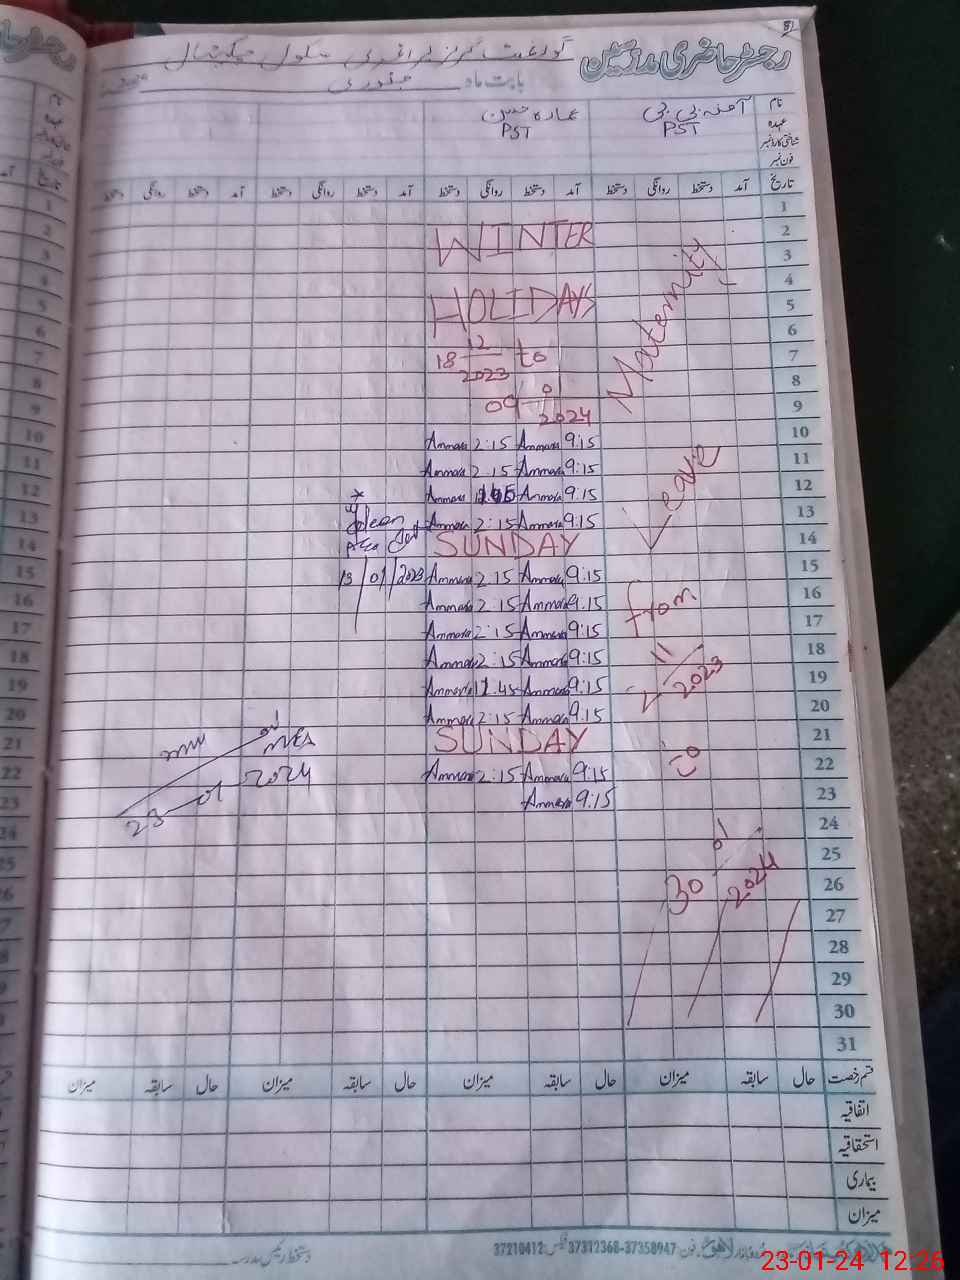 رجسٹر حاضری مدرسین گورنمنٹ گرلز پرائمری سکول
بابت ماہ جنوری
نام آمنہ بی بی عمارہ حسین
عہدہ PST PST
شناختی کارڈ نمبر
فون نمبر
تاریخ آمد دستخط روانگی دستخط آمد دستخط روانگی دستخط آمد دستخط روانگی دستخط آمد دستخط روانگی دستخط
1
2 WINTER
3
4
5 HOLIDAYS
6
7 18 12 2023 to
8
9 09 01 2024
Maternity
Leave
from
2 11 2023
to
30 01 2024
10 9:15 Ammara 2:15 Ammara
11 9:15 Ammara 2:15 Ammara
12 9:15 Ammara Ammara
13 9:15 Ammara 2:15 Ammara
14 SUNDAY
15 9:15 Ammara 2:15 Ammara
13/01/2023
16 9:15 Ammara 2:15 Ammara
17 9:15 Ammara 2:15 Ammara
18 9:15 Ammara 2:15 Ammara
19 9:15 Ammara 11.45 Ammara
20 9:15 Ammara 2:15 Ammara
21 SUNDAY
22 9:15 Ammara 2:15 Ammara
23 9:15 Ammara
MEA
23-01-2024
24
25
26
27
28
29
30
31
قسم رخصت حال سابقہ میزان حال سابقہ میزان حال سابقہ میزان حال سابقہ میزان
اتفاقیہ
استحقاقیہ
بیماری
میزان
فون: 37358947-37312368 فیکس: 37210412
23-01-24 12:26